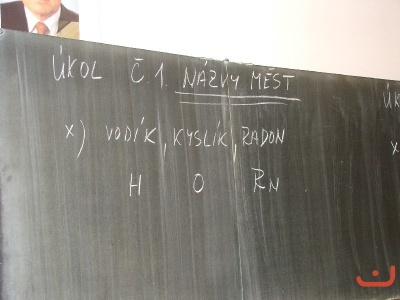 ÚKOL Č.1. NÁZVY MĚST
x) VODÍK, KYSLÍK, RADON
H O Rn
ÚK
x